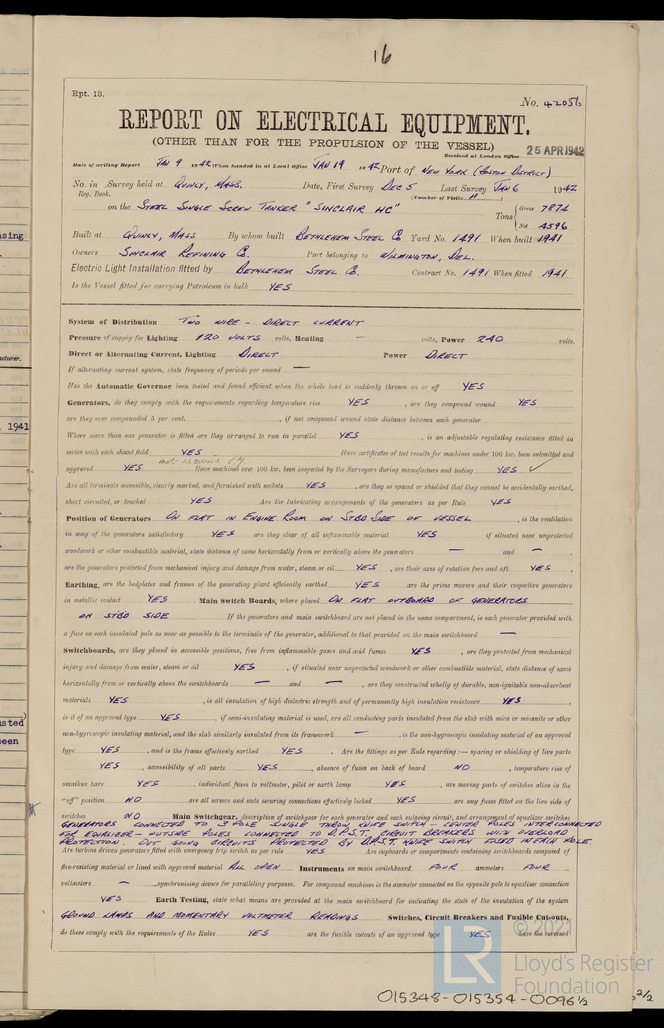 16
Rpt. 13.
No. 42056
REPORT ON ELECTRICAL EQUIPMENT.
(OTHER THAN FOR THE PROPULSION OF THE VESSEL)
Received at London Office 25 APR 1942
Date of writing Report JAN 9 1942 When handed in at Local Office JAN 19 1942 Port of NEW YORK (BOSTON DISTRICT)
No. in Survey held at QUINCY, MASS. Date, First Survey DEC 5 Last Survey JAN 6 1942
Reg. Book. (Number of Visits 11)
on the STEEL SINGLE SCREW TANKER "SINCLAIR HC" Tons { Gross 7874
Net 4596
Built at QUINCY, MASS By whom built BETHLEHEM STEEL CO Yard No. 1491 When built 1941
Owners SINCLAIR REFINING CO. Port belonging to WILMINGTON, DEL.
Electric Light Installation fitted by BETHLEHEM STEEL CO. Contract No. 1491 When fitted 1941
Is the Vessel fitted for carrying Petroleum in bulk YES
System of Distribution TWO WIRE - DIRECT CURRENT
Pressure of supply for Lighting 120 VOLTS volts, Heating — volts, Power 240 volts.
Direct or Alternating Current, Lighting DIRECT Power DIRECT
If alternating current system, state frequency of periods per second —
Has the Automatic Governor been tested and found efficient when the whole load is suddenly thrown on or off YES
Generators, do they comply with the requirements regarding temperature rise YES, are they compound wound YES
are they over compounded 5 per cent., if not compound wound state distance between each generator
Where more than one generator is fitted are they arranged to run in parallel YES, is an adjustable regulating resistance fitted in
series with each shunt field YES Have certificates of test results for machines under 100 kw. been submitted and
approved YES Have machines over 100 kw. been inspected by the Surveyors during manufacture and testing YES ✓
Are all terminals accessible, clearly marked, and furnished with sockets YES, are they so spaced or shielded that they cannot be accidentally earthed,
short circuited, or touched YES Are the lubricating arrangements of the generators as per Rule YES
Position of Generators ON FLAT IN ENGINE ROOM ON STBD SIDE OF VESSEL, is the ventilation
in way of the generators satisfactory YES are they clear of all inflammable material YES if situated near unprotected
woodwork or other combustible material, state distance of same horizontally from or vertically above the generators — and —,
are the generators protected from mechanical injury and damage from water, steam or oil YES, are their axes of rotation fore and aft YES,
Earthing, are the bedplates and frames of the generating plant efficiently earthed YES are the prime movers and their respective generators
in metallic contact YES Main Switch Boards, where placed ON FLAT OUTBOARD OF GENERATORS
ON STBD SIDE If the generators and main switchboard are not placed in the same compartment, is each generator provided with
a fuse on each insulated pole as near as possible to the terminals of the generator, additional to that provided on the main switchboard —
Switchboards, are they placed in accessible positions, free from inflammable gases and acid fumes YES, are they protected from mechanical
injury and damage from water, steam or oil YES, if situated near unprotected woodwork or other combustible material, state distance of same
horizontally from or vertically above the switchboards — and —, are they constructed wholly of durable, non-ignitable non-absorbent
materials YES, is all insulation of high dielectric strength and of permanently high insulation resistance YES,
is it of an approved type YES, if semi-insulating material is used, are all conducting parts insulated from the slab with mica or micanite or other
non-hygroscopic insulating material, and the slab similarly insulated from its framework —, is the non-hygroscopic insulating material of an approved
type YES, and is the frame effectively earthed YES. Are the fittings as per Rule regarding :— spacing or shielding of live parts
YES, accessibility of all parts YES, absence of fuses on back of board NO, temperature rise of
omnibus bars YES, individual fuses to voltmeter, pilot or earth lamp YES, are moving parts of switches alive in the
"off" position NO are all screws and nuts securing connections effectively locked YES are any fuses fitted on the live side of
switches NO Main Switchgear, description of switchgear for each generator and each outgoing circuit, and arrangement of equalizer switches
GENERATORS CONNECTED TO 3 POLE SINGLE THROW KNIFE SWITCH - CENTER POLES INTERCONNECTED
FOR EQUALIZER - OUTSIDE POLES CONNECTED TO D.P.S.T. CIRCUIT BREAKERS WITH OVERLOAD
PROTECTION. OUT GOING CIRCUITS PROTECTED BY D.P.S.T. KNIFE SWITCH FUSED IN EACH POLE
Are turbine driven generators fitted with emergency trip service as per rule YES Are cupboards or compartments containing switchboards composed of
fire-resisting material or lined with approved material ALL OPEN Instruments on main switchboard FOUR ammeters FOUR
voltmeters — synchronising device for paralleling purposes. For compound machines is the ammeter connected on the opposite pole to equaliser connection
YES Earth Testing, state what means are provided at the main switchboard for indicating the state of the insulation of the system
GROUND LAMPS AND MOMENTARY VOLTMETER READINGS Switches, Circuit Breakers and Fusible Cut-outs,
do these comply with the requirements of the Rules YES are the fusible cutouts of an approved type YES have the reversed
© 2021
LR
Lloyd's Register
Foundation
015348-015354-0096 1/2
2/2
1941